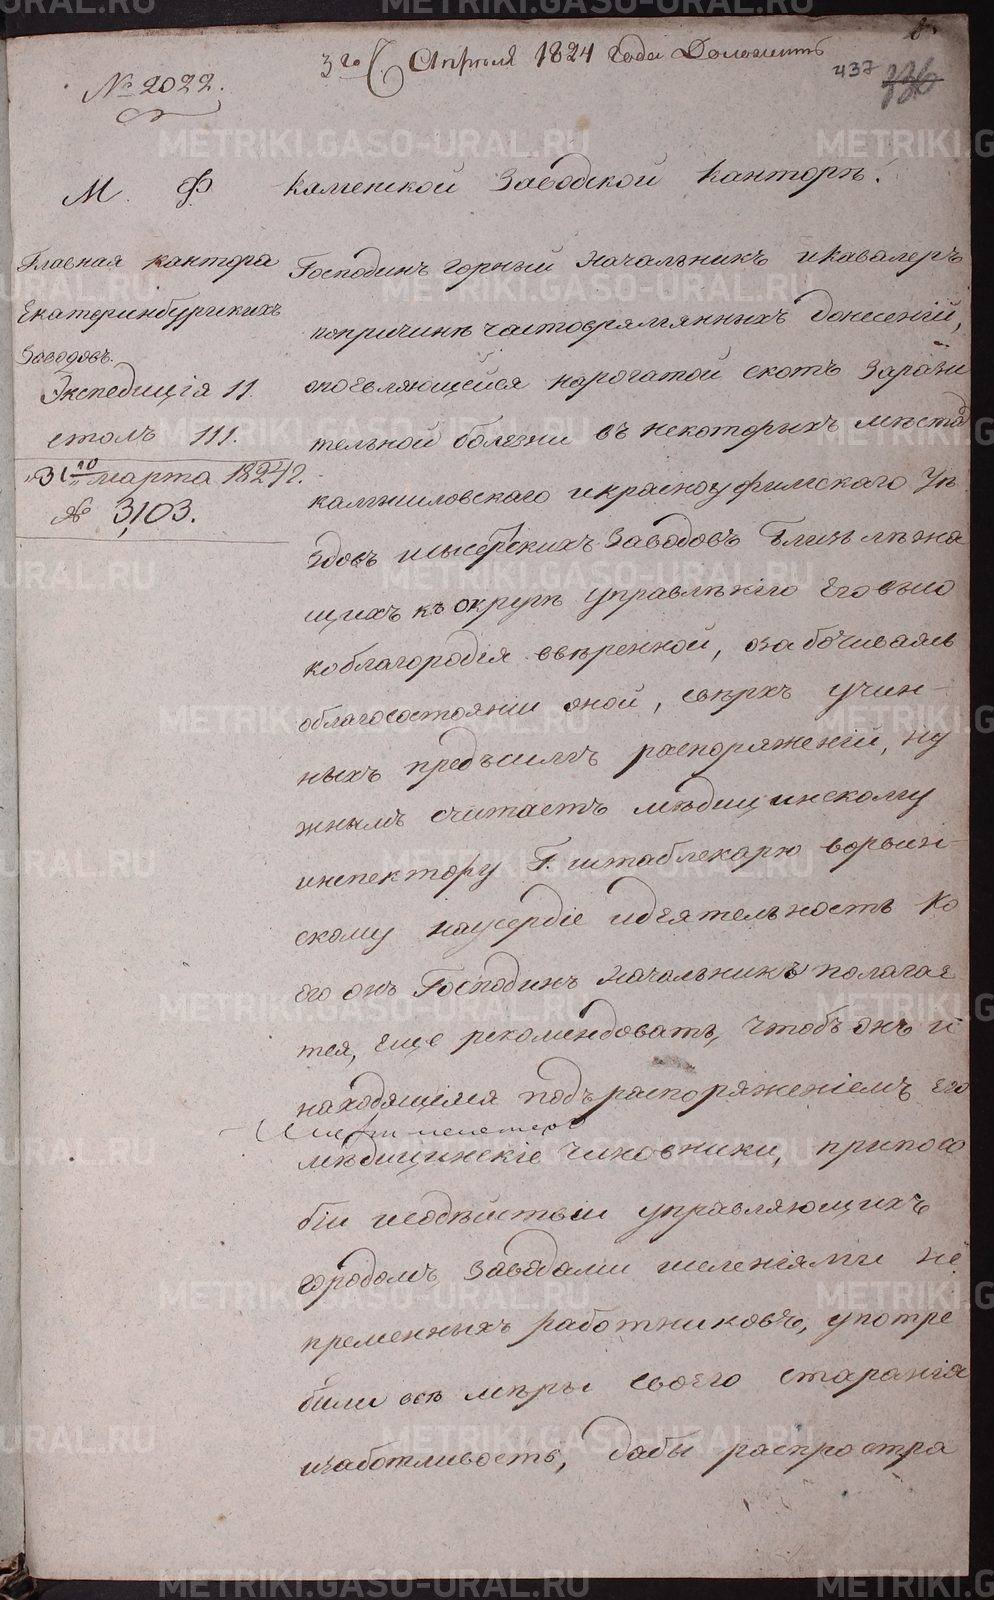 3го Апреля 1824 года Доложить
№ 2022.
437
336
М. Ф. Каменской Заводской Канторѣ.
Главная кантора
Екатеринбургскихъ
Заводовъ.
Экспедиція 11.
столъ 111.
31го марта 1824г.
№ 3,103.
Господинъ горный Начальникъ икавалеръ
попричинѣ частовремянныхъ донесеній,
опоевляющейся нарогатой скотъ Зарази
тельной болезни въ некоторыхъ мѣстахъ
камышловскаго икрасноуфимскаго Уѣ
здовъ исысерскихъ Заводовъ близь лѣжа
щихъ къ округѣ управлѣнію Его высо
коблагородія ввѣренной, озабочиваясь
облагосостояніи оной, сверхъ учин-
ныхъ предъсимъ распоряженій, ну
жнымъ считаетъ мѣдицинскому
инспектору Г. штаблекарю ворвин-
скому наусердіе идѣятельность Ко
его онъ Господинъ Начальникъ полагае
тся, еще рекомендовать, чтобъ онъ и
находящіися подъ распоряженіемъ Его
мѣдицинскіе чиновники, припосо
біи исодѣйствіи управляющихъ
городомъ Заводами иселеніями не
пременныхъ работниковъ, употре
били всѣ мѣры своего старанія
изаботливость, дабы распростра
METRIKI.GASO-URAL.RU